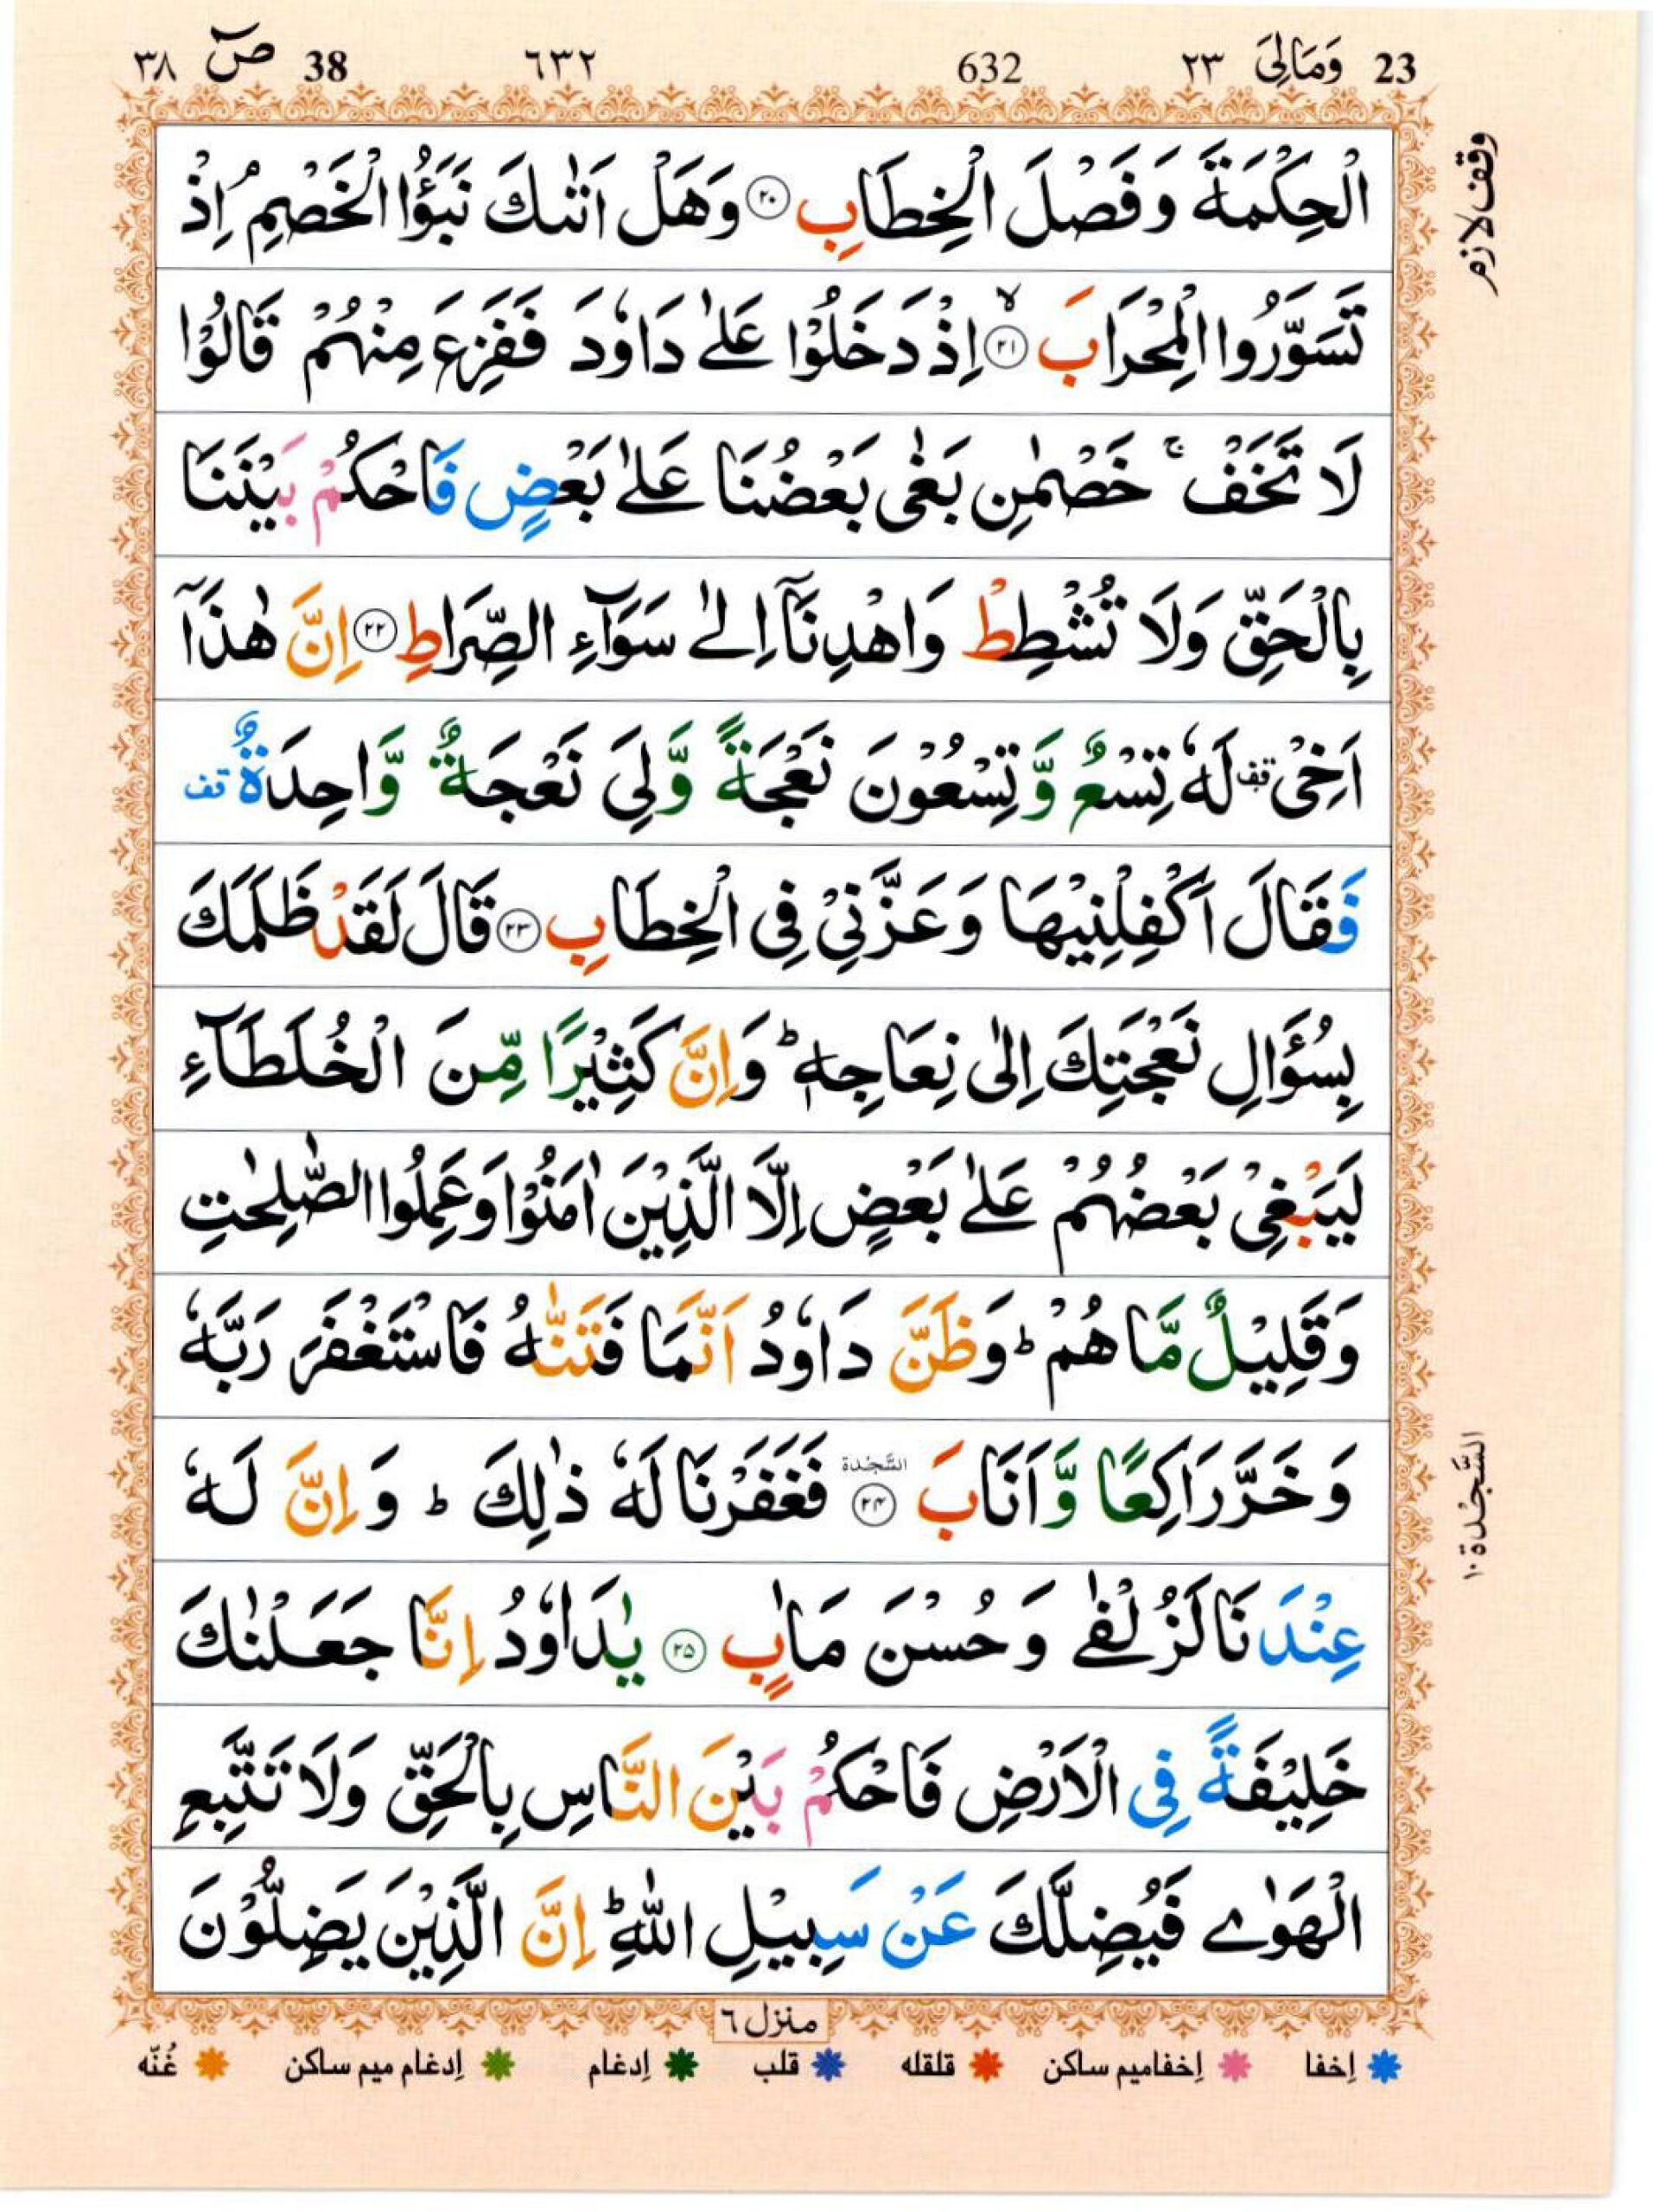 23 وَمَالِیَ ٢٣ 632 ٦٣٢ 38 صٓ ٣٨
وقف لازم
الْحِكْمَةَ وَ فَصْلَ الْخِطَابِ ۲۰ وَهَلْ اَتٰىكَ نَبَؤُا الْخَصْمِ ۘ اِذْ
تَسَوَّرُوا الْمِحْرَابَ ۲۱ ۙ اِذْ دَخَلُوْا عَلٰى دَاوٗدَ فَفَزِعَ مِنْهُمْ قَالُوْا
لَا تَخَفْ ۚ خَصْمٰنِ بَغٰى بَعْضُنَا عَلٰى بَعْضٍ فَاحْكُمْ بَيْنَنَا
بِالْحَقِّ وَلَا تُشْطِطْ وَاهْدِنَاۤ اِلٰى سَوَآءِ الصِّرَاطِ ۲۲ اِنَّ هٰذَاۤ
اَخِىْ قف لَهٗ تِسْعٌ وَّ تِسْعُوْنَ نَعْجَةً وَّلِىَ نَعْجَةٌ وَّاحِدَةٌ قف
فَقَالَ اَكْفِلْنِيْهَا وَعَزَّنِىْ فِى الْخِطَابِ ۲۳ قَالَ لَقَدْ ظَلَمَكَ
بِسُؤَالِ نَعْجَتِكَ اِلٰى نِعَاجِهٖ ؕ وَاِنَّ كَثِيْرًا مِّنَ الْخُلَطَآءِ
لَيَبْغِىْ بَعْضُهُمْ عَلٰى بَعْضٍ اِلَّا الَّذِيْنَ اٰمَنُوْا وَعَمِلُوا الصّٰلِحٰتِ
وَقَلِيْلٌ مَّا هُمْ ؕ وَظَنَّ دَاوٗدُ اَنَّمَا فَتَنّٰهُ فَاسْتَغْفَرَ رَبَّهٗ
وَخَرَّ رَاكِعًا وَّ اَنَابَ السَّجْدَة ۲۴ فَغَفَرْنَا لَهٗ ذٰلِكَ ؕ وَ اِنَّ لَهٗ
السَّجْدَة ١٠
عِنْدَنَا لَزُلْفٰى وَ حُسْنَ مَاٰبٍ ۲۵ يٰدَاوٗدُ اِنَّا جَعَلْنٰكَ
خَلِيْفَةً فِى الْاَرْضِ فَاحْكُمْ بَيْنَ النَّاسِ بِالْحَقِّ وَلَا تَتَّبِعِ
الْهَوٰى فَيُضِلَّكَ عَنْ سَبِيْلِ اللّٰهِ ؕ اِنَّ الَّذِيْنَ يَضِلُّوْنَ
منزل ٦
اِخفا اِخفامیم ساکن قلقله قلب اِدغام اِدغام میم ساکن غُنّه